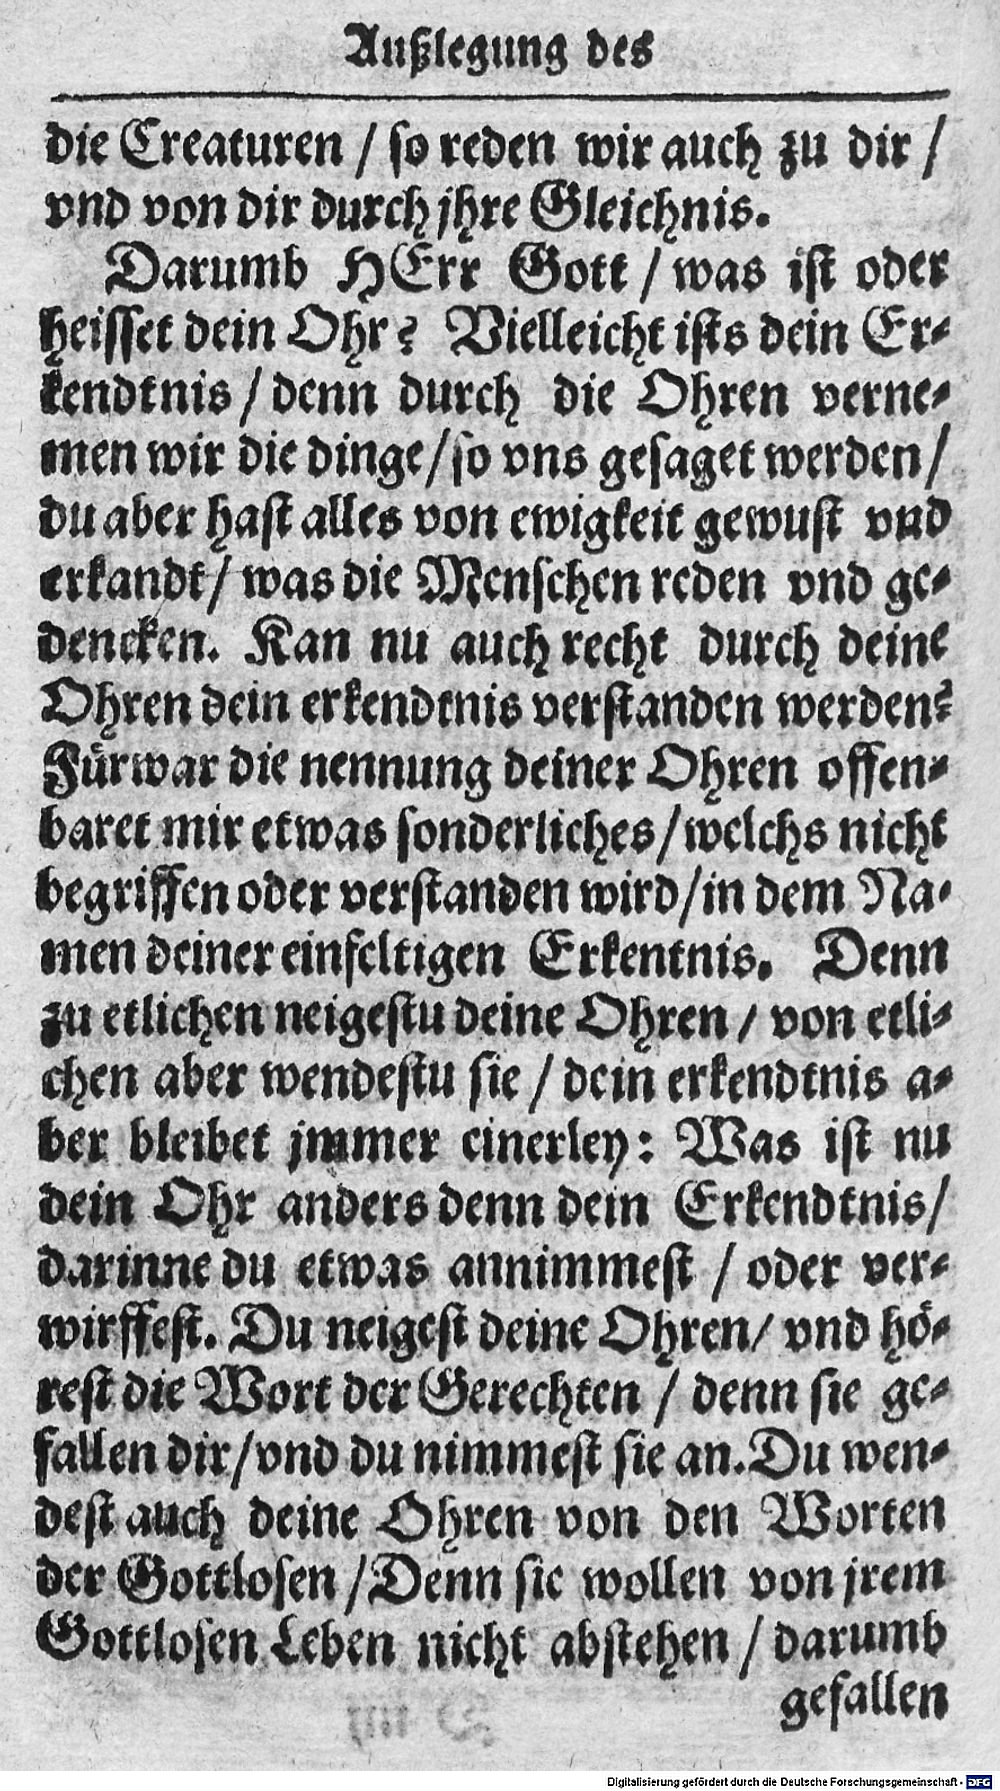 Außlegung des
die Creaturen / so reden wir auch zu dir /
vnd von dir durch jhre Gleichnis.
Darumb HErr Gott / was ist oder
heisset dein Ohr? Vielleicht ists dein Er-
kendtnis / denn durch die Ohren verne-
men wir die dinge / so vns gesaget werden /
du aber hast alles von ewigkeit gewust vnd
erkandt / was die Menschen reden vnd ge-
dencken. Kan nu auch recht durch deine
Ohren dein erkendtnis verstanden werden?
Fürwar die nennung deiner Ohren offen-
baret mir etwas sonderliches / welchs nicht
begriffen oder verstanden wird / in dem Na-
men deiner einfeltigen Erkentnis. Denn
zu etlichen neigestu deine Ohren / von etli-
chen aber wendestu sie / dein erkendtnis a-
ber bleibet jmmer einerley: Was ist nu
dein Ohr anders denn dein Erkendtnis /
darinne du etwas annimmest / oder ver-
wirffest. Du neigest deine Ohren / vnd hö-
rest die Wort der Gerechten / denn sie ge-
fallen dir / vnd du nimmest sie an. Du wen-
dest auch deine Ohren von den Worten
der Gottlosen / Denn sie wollen von jrem
Gottlosen Leben nicht abstehen / darumb
gefallen
Digitalisierung gefördert durch die Deutsche Forschungsgemeinschaft - DFG